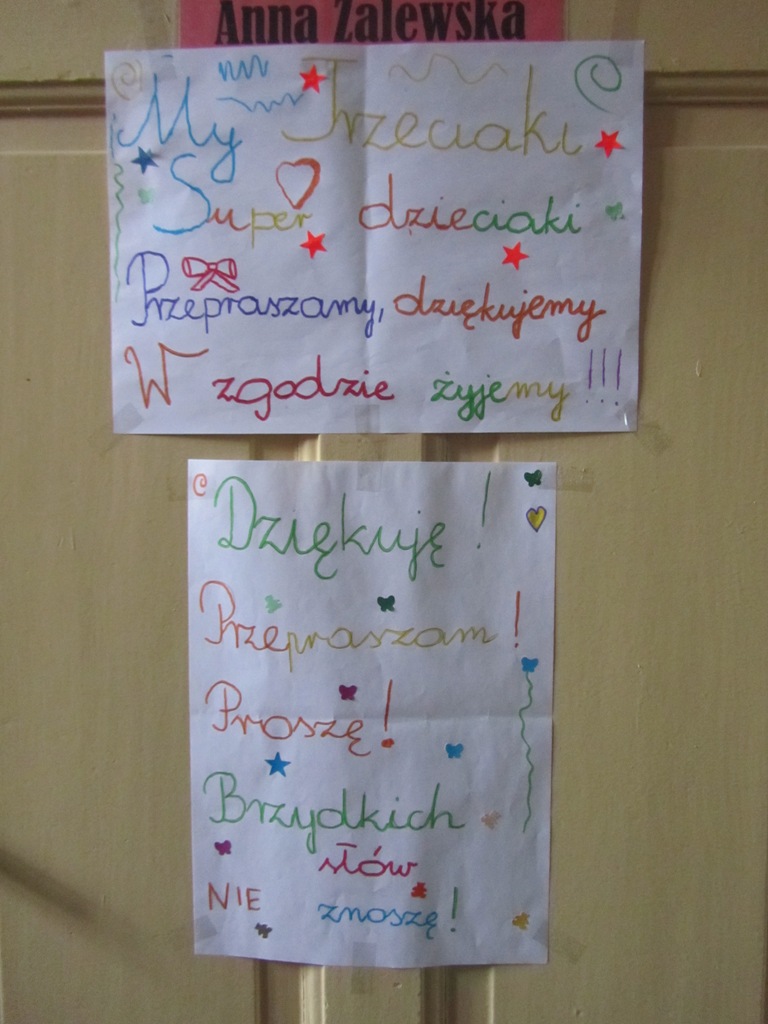 Anna Zalewska
My Trzeciaki
Super dzieciaki
Przepraszamy, dziękujemy
W zgodzie żyjemy !!!
Dziękuję !
Przepraszam !
Proszę !
Brzydkich
słów
NIE znoszę !